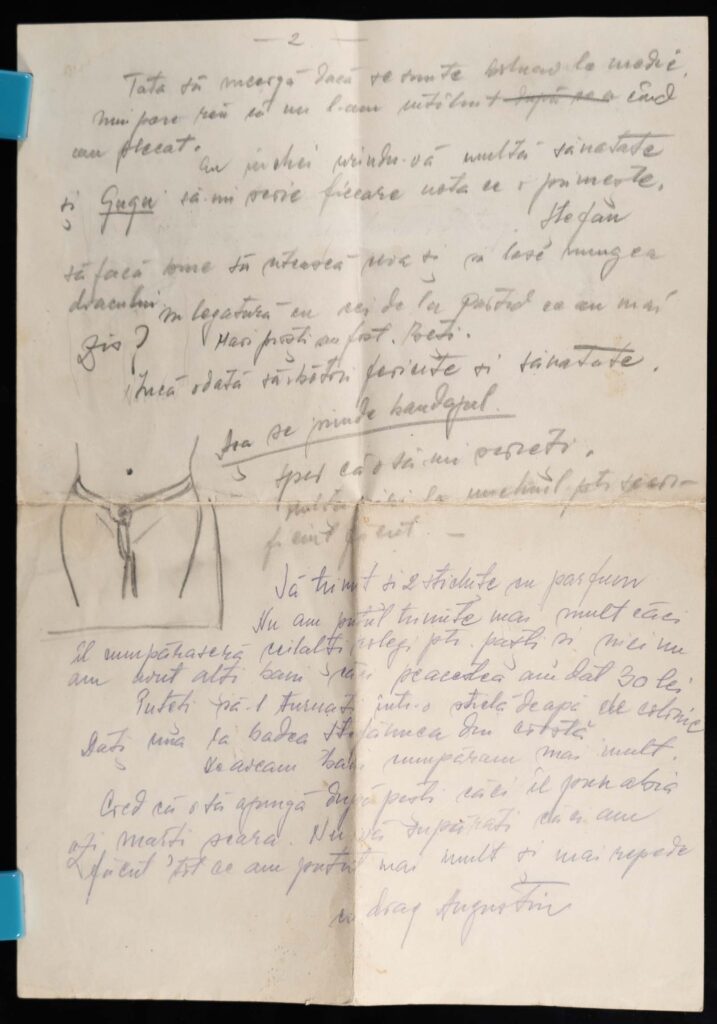 — 2 —
Tata să meargă dacă se simte bolnav la medic,
îmi pare rău că nu l-am întâlnit după ce a când
am plecat.
Am închei urându-vă multă sănatate
și Gugu să-mi scrie fiecare nota ce o primește.
Ștefan
să facă bine să citească ceva și să lase mingea
dracului. În legatură cu cei de la partid ce au mai
zis? Mari proști au fost.
Încă odată sărbători fericite si sănatate.
Așa se prinde bandajul.
Sper că o să-mi scrieti.
la unchiul ptr
făcut —
Vă trimit si 2 sticluțe cu parfum
Nu am putut trimite mai mult căci
îl cumpăraseră ceilalți colegi ptr. paști si nici nu
am avut alți bani căci pe acestea am dat 30 lei
Puteti să-l turnați într-o sticlă de apă de colonie
Dați una la badea Ștefănuca din costă
De aveam bani cumpăram mai mult.
Cred că o să ajungă după paști căci îl pun abia
azi marti seara. Nu vă supărați căci am
făcut tot ce am putut mai mult si mai repede
cu drag Augustin